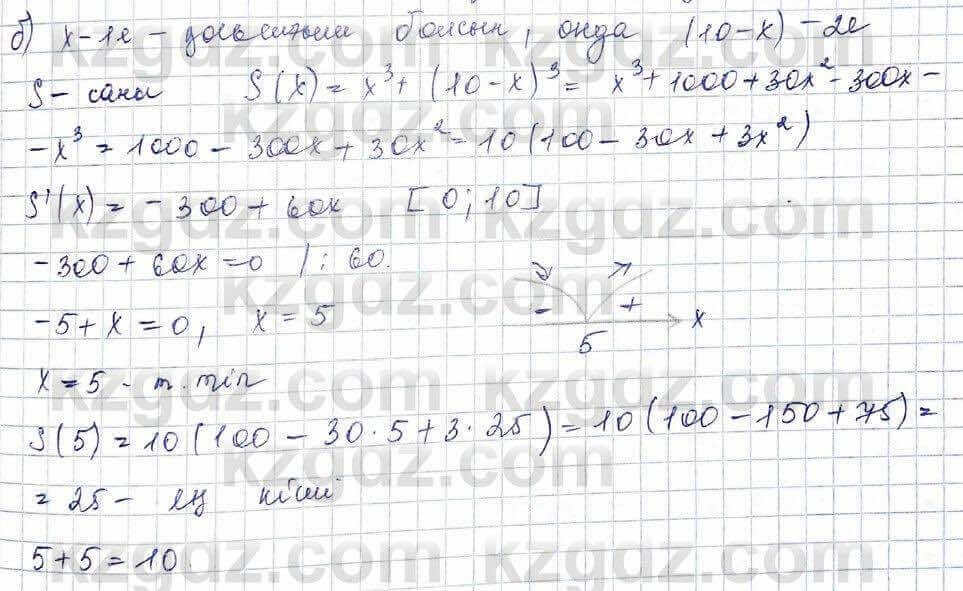 б) x-1е - қосылғыш болсын, онда (10-x) - 2е
S - саны S(x) = x³ + (10-x)³ = x³ + 1000 + 30x² - 300x -
- x³ = 1000 - 300x + 30x² = 10(100 - 30x + 3x²)
S'(x) = - 300 + 60x [0; 10]
- 300 + 60x = 0 | : 60.
- 5 + x = 0, x = 5
- + x
5
x = 5 - m. min
S(5) = 10(100 - 30·5 + 3·25) = 10(100 - 150 + 75) =
= 25 - ең кіші
5 + 5 = 10.
kzgdz.com
kzgdz.com
kzgdz.com
kzgdz.com
kzgdz.com
kzgdz.com
kzgdz.com
kzgdz.com